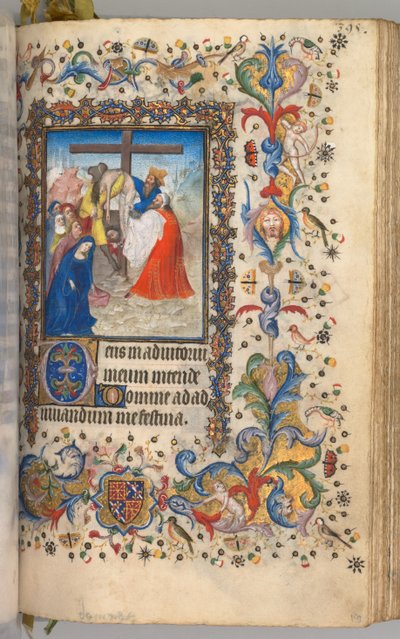 395.
Deus in adiutoriū
meum intende
Domine ad ad
iuuandum me festina.